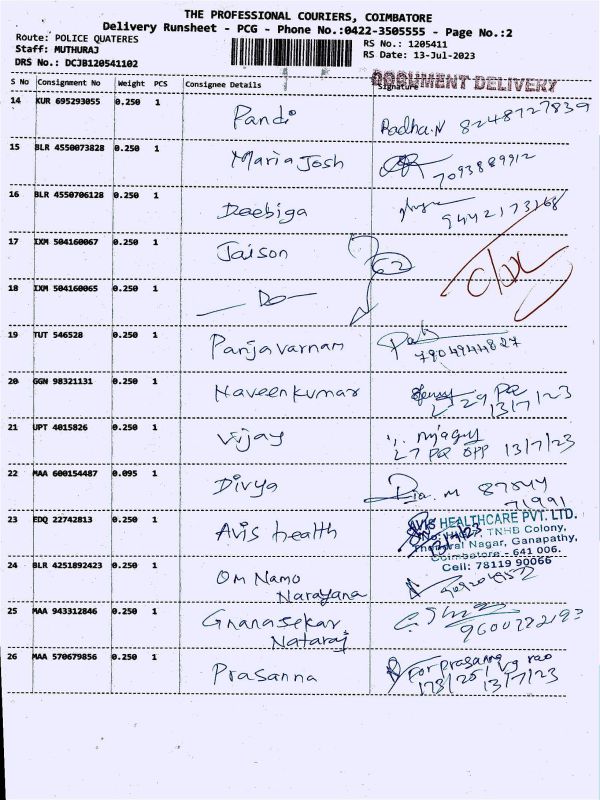 THE PROFESSIONAL COURIERS, COIMBATORE
Delivery Runsheet - PCG - Phone No.:0422-3505555 - Page No.:2
Route: POLICE QUATERES
RS No.: 1205411
Staff: MUTHURAJ
RS Date: 13-Jul-2023
DRS No.: DCJB120541102
DOCUMENT DELIVERY
S No Consignment No Weight PCS Consignee Details Signature
14 KUR 695293055 0.250 1 Pandi Radha.N 8248727839
15 BLR 4550073828 0.250 1 Maria Josh 7093889912
16 BLR 4550706128 0.250 1 Deebiga 9442173168
17 IXM 504160067 0.250 1 Jaison
18 IXM 504160065 0.250 1 — Do —
19 TUT 546528 0.250 1 Panjavarnam 7904944827
20 GGN 98321131 0.250 1 Naveenkumar 29 PQ
13/7/23
21 UPT 4015826 0.250 1 Vijay
27 PQ OPP 13/7/23
22 MAA 600154487 0.095 1 Divya Dia. M 87544
71991
23 EDQ 22742813 0.250 1 Avis health
AVIS HEALTHCARE PVT. LTD.
TNHB Colony,
Nagar, Ganapathy,
Coimbatore - 641 006.
Cell: 78119 90066
24 BLR 4251892423 0.250 1 Om Namo
Narayana
25 MAA 943312846 0.250 1 Gnanasekar
Nataraj
26 MAA 570679856 0.250 1 Prasanna For prasanna
13/7/23